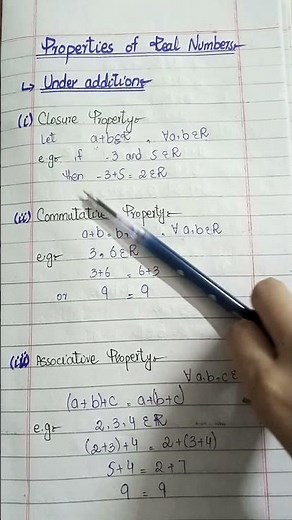 Properties of Real Numbers
↳ Under addition
(i) Closure Property
Let a+b∈R , ∀a,b∈R
e.g. if -3 and 5∈R
then -3+5 = 2∈R
(ii) Commutative Property
a+b = b , ∀ a,b∈R
e.g. 3, 6∈R
3+6 = 6+3
or 9 = 9
(iii) Associative Property
∀ a,b,c∈
(a+b)+c = a+(b+c)
e.g. 2,3,4 ∈R
(2+3)+4 = 2+(3+4)
5+4 = 2+7
9 = 9